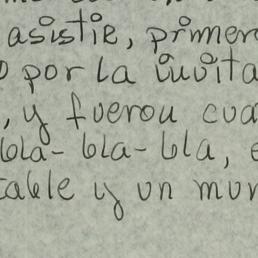 asistie, primer
por la invita
, y fueron cua
bla- bla- bla, e
table y un mun